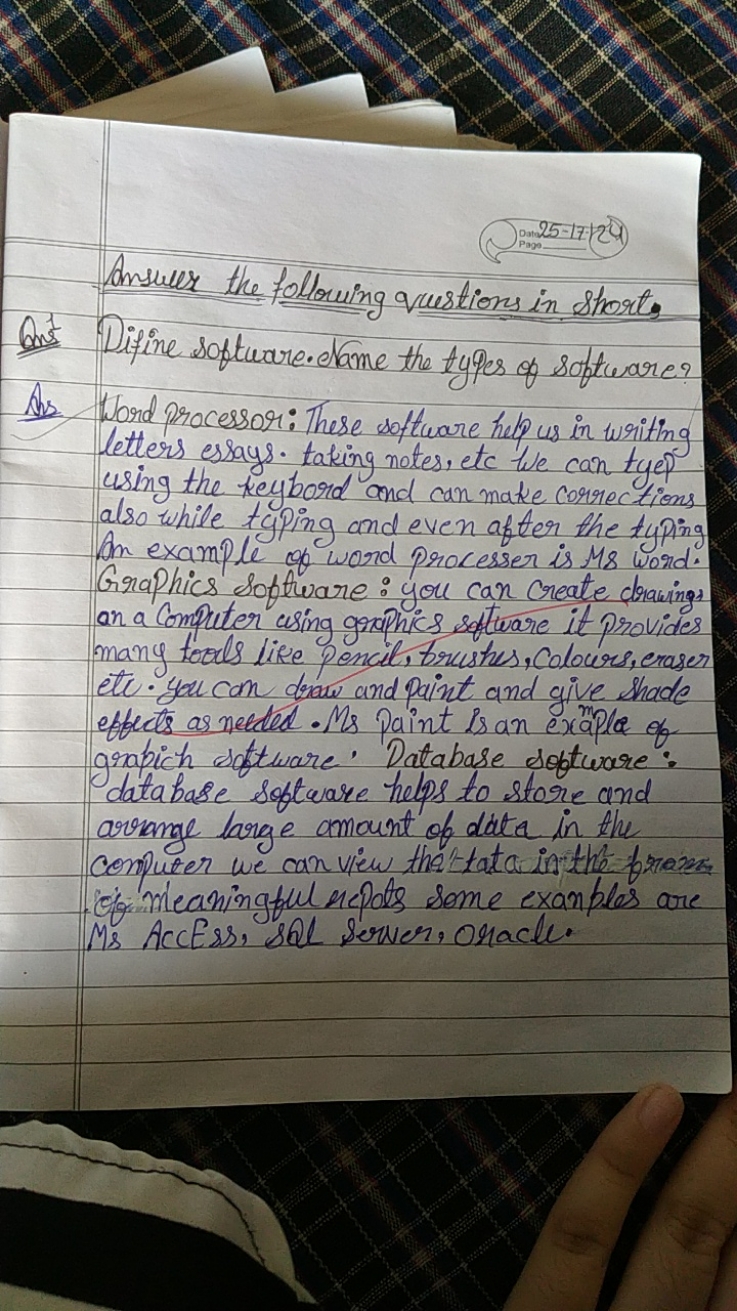 Date 25-17-24
Page
Answer the following questions in short.
Qns1 Difine software. Name the types of software?
Ans Word processor: These software help us in writing
letters essays. taking notes, etc We can tyep
using the keybord and can make corrections
also while typing and even after the typing
An example of word processer is MS Word.
Graphics Software: you can create drawings
on a Computer using graphics software it provides
many tools like pencil, brushes, Colours, eraser
etc. you can draw and paint and give shade
effects as needed. Ms paint is an example of
grapich software. Database software:
database software helps to store and
arrange large amount of data in the
computer we can view the tata in the
of meaningful repots some examples are
Ms AccEss, SQL Server, Oracle.